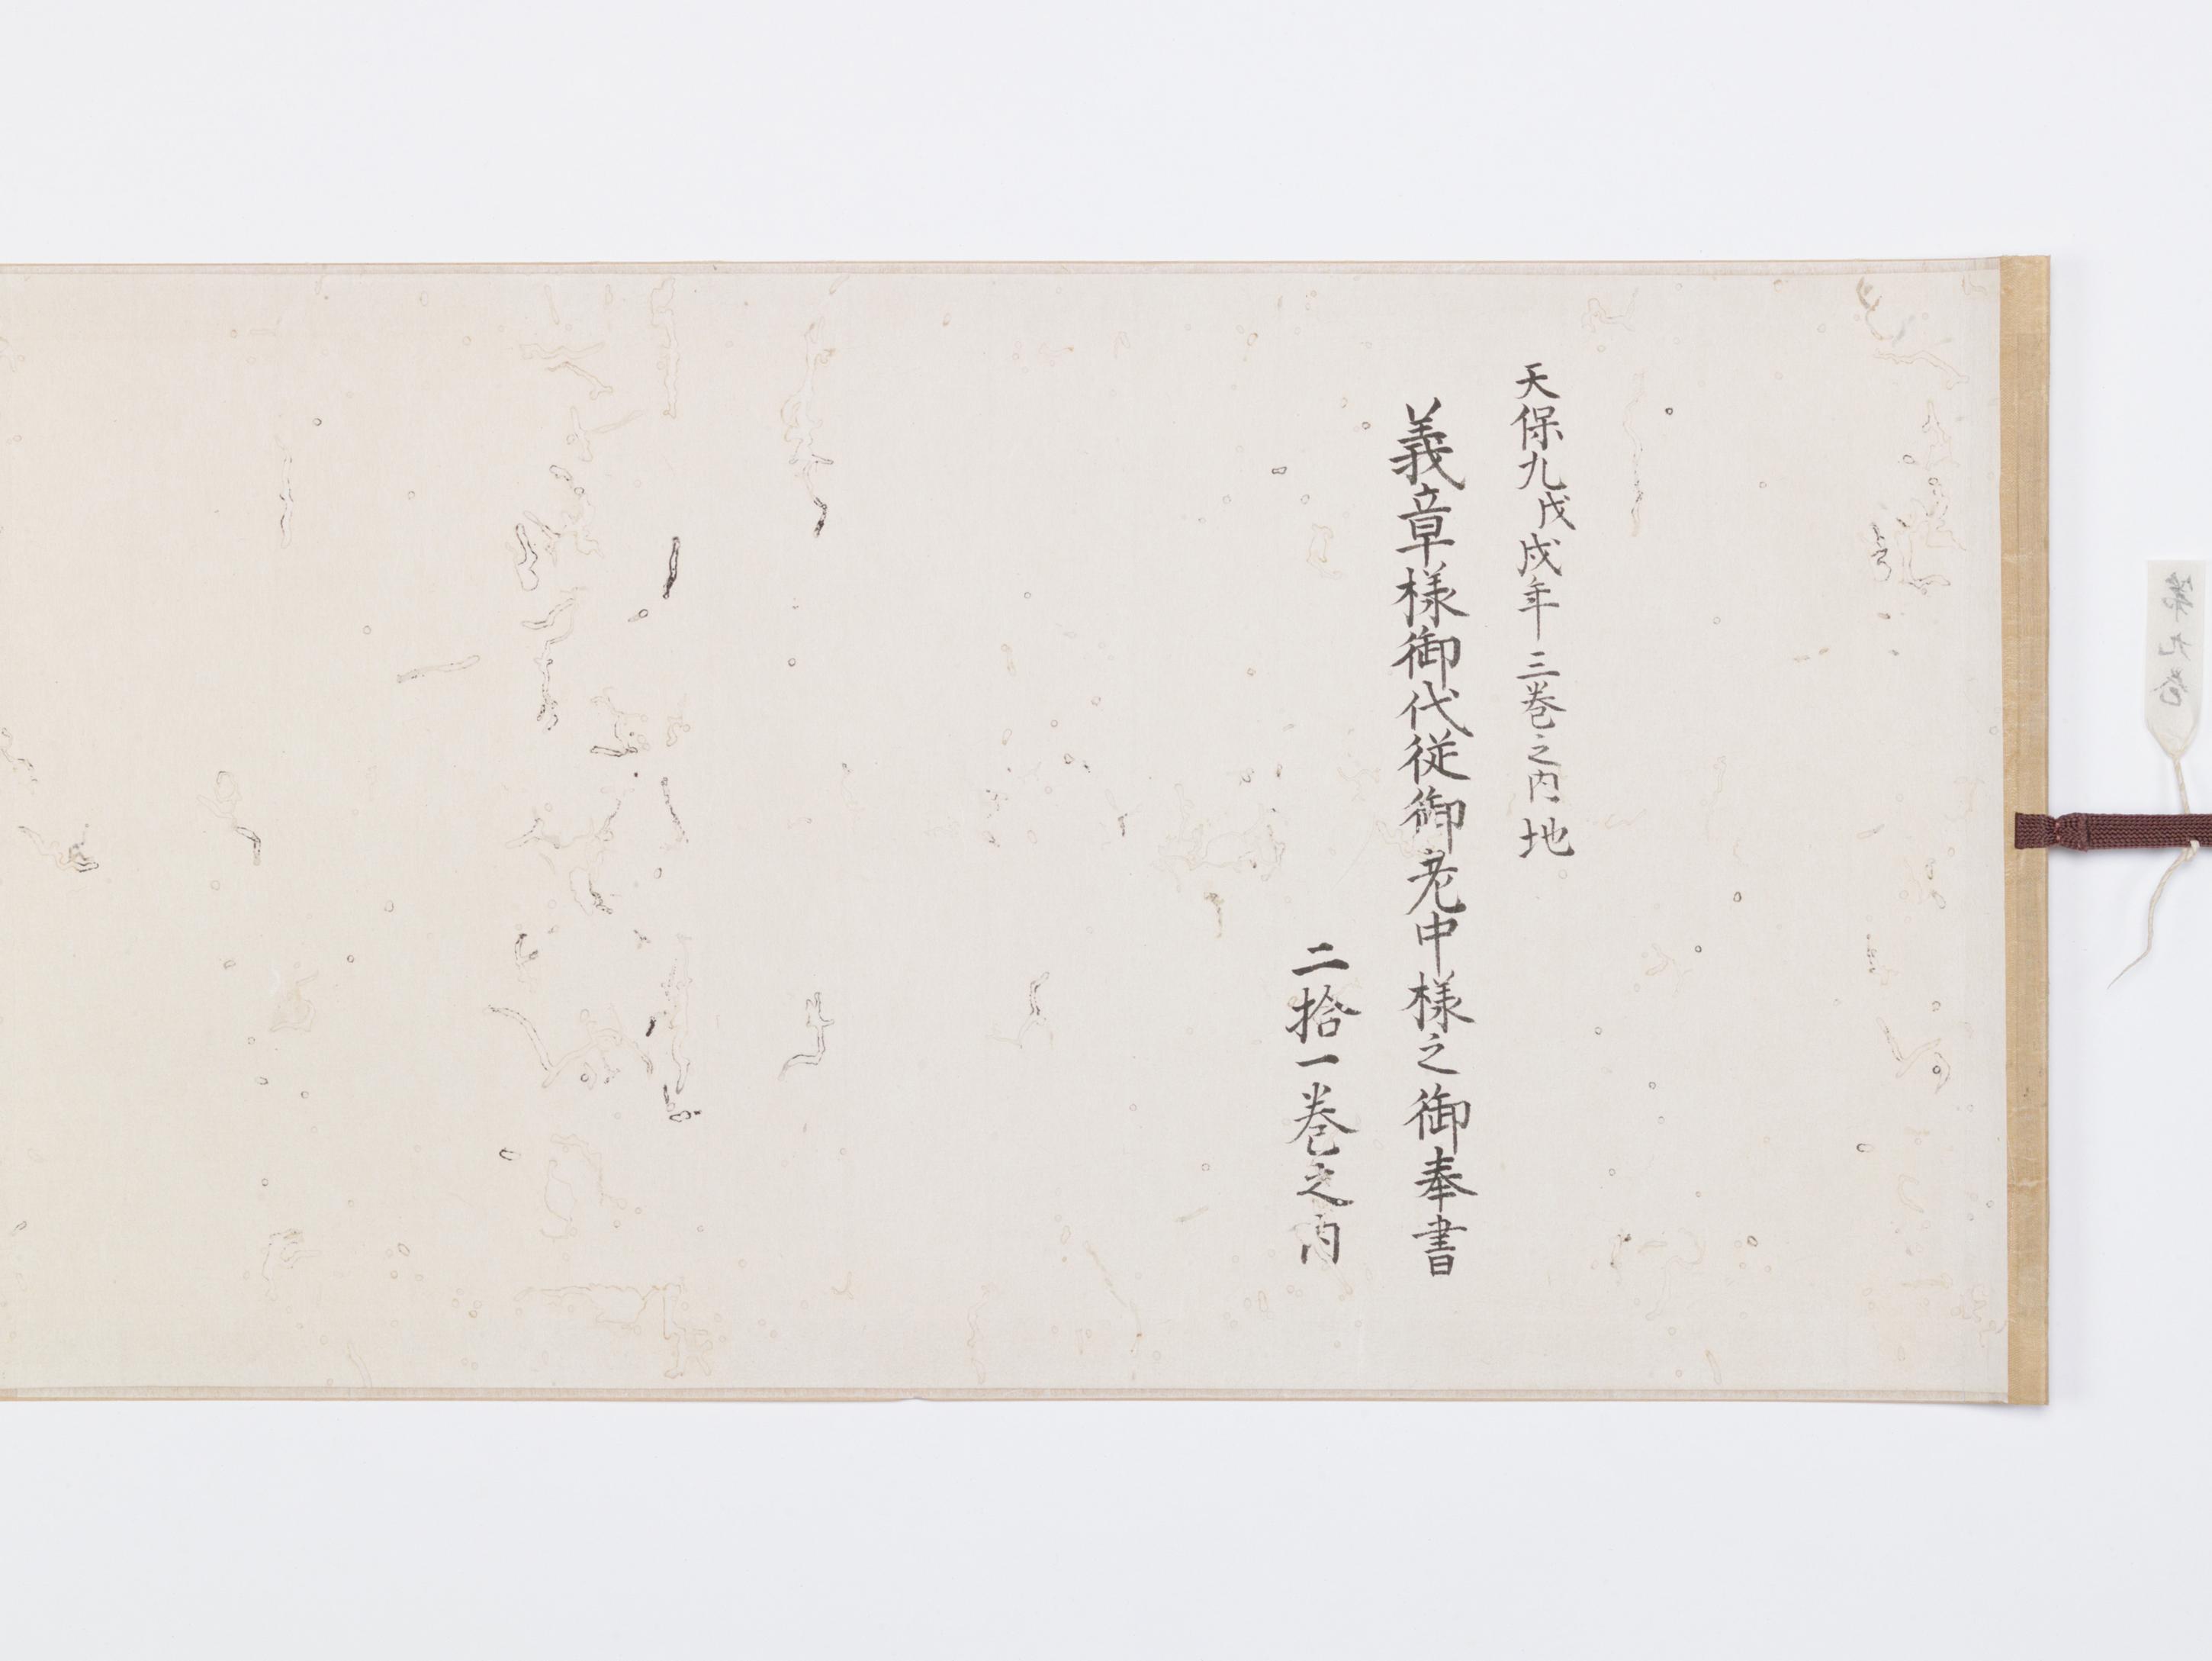 天保九戊戌年 三巻之内 地
義章様御代従御老中様之御奉書
二拾一巻之内